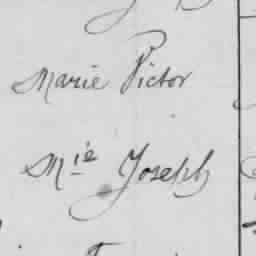 Marie Victor
Mie Joseph